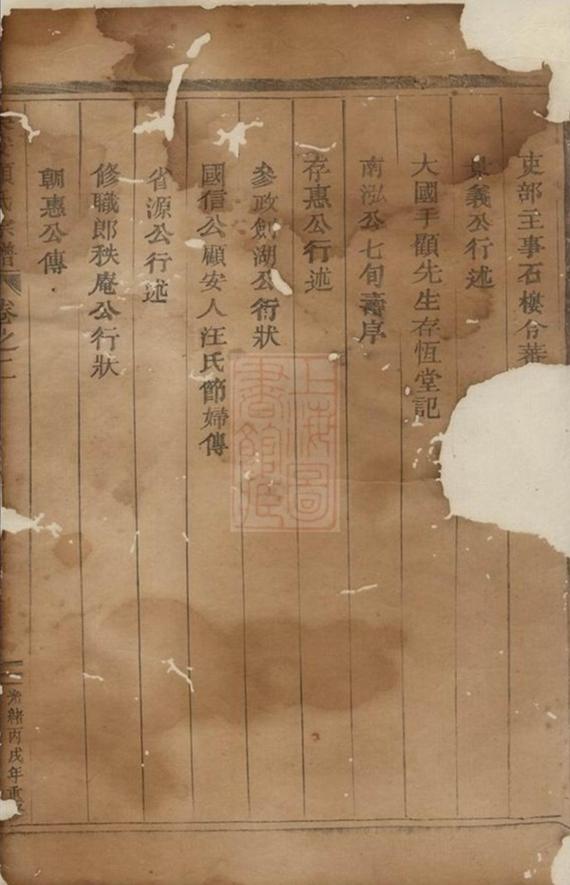 吏部主事石樓公
義公行述
大國手顧先生存恆堂記
南泓公七旬壽序
存惠公行述
參政劍湖公行狀
國信公顧安人汪氏節婦傳
省源公行述
修職郎秩庵公行狀
朝惠公傳
氏宗譜 卷之二
光緒丙戌年重
上海圖書館藏